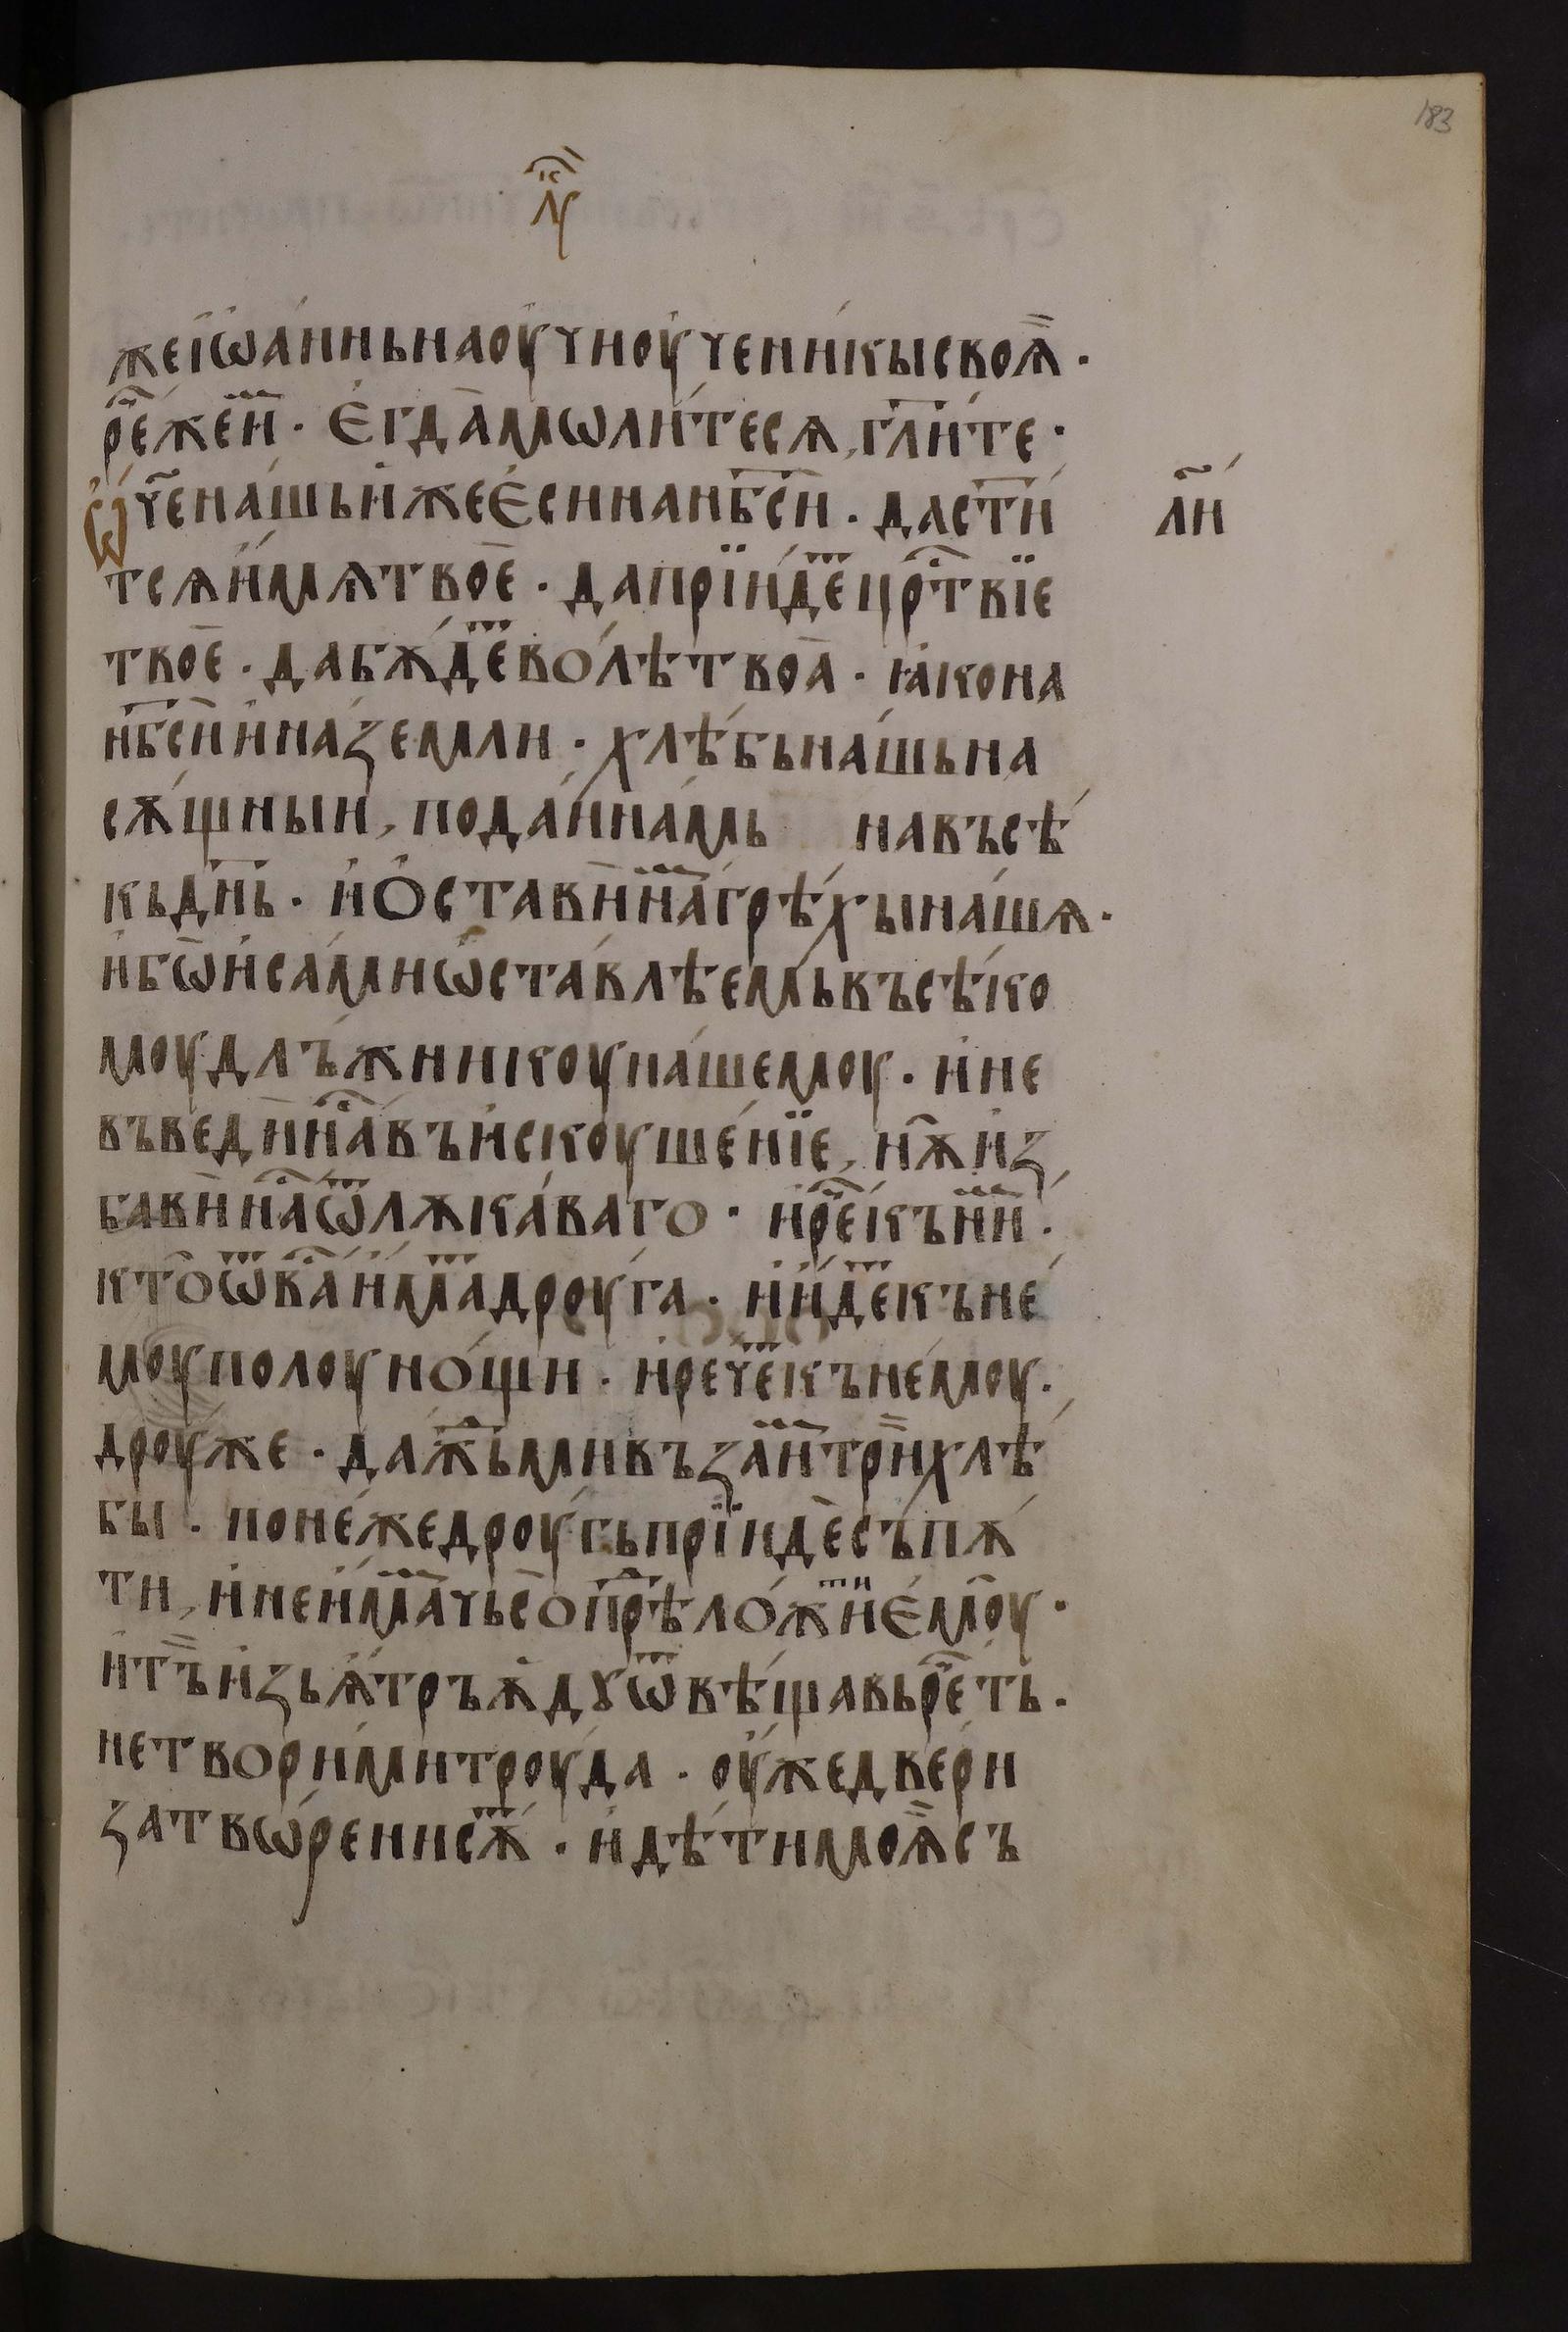 183
лꙋⷦ҇
жеі҆ѡа́ннь наоу҆чи оу҆чени́кы своѧ̏ ·
рⷱ҇е́ же и҆ⷨ · Є҆гда̀ мѡли́те сѧ, гл҃и́те ·
Ѡ҆́ч҃е на́шь и҆же є҆сѝ на нб҃сѝ · да ст҃и́
т сѧ и҆́мѧ твоѐ · да прїи́деⷮ црⷭ҇твїе
твоѐ · да бѫ́деⷮ во́лѣ твоа̀ · ꙗ҆́ко на
нб҃сѝ и҆ на́ земли · хлѣ́бь на́шь на
сѫ́щныи, пода́и на́мь на въсѣ́
кь дн҃ь · и҆ Ѻставѝ наⷨ грѣ́хы на́шѧ ·
и҆бѡ и҆ са́ми ѡ҆ста́влѣемь въсѣ́ко
моу длъ́жникоу на́шемоу · и҆ не
въведѝ наⷭ҇ въ и҆скоуше́нїе, нѫ̑ и҆з
бавѝ наⷭ҇ ѿ лѫка́ваго · и҆ рⷱ҇е́ къ ниⷨ ·
кто̑ ѿ ваⷭ҇ и҆́маⷨ дроу́га · и҆ и҆́деⷮ къ не́
моу полоуно́щи · и҆ рече́ⷮ къ не́моу ·
дроуже · да́жⷣь ми въза́иⷨ трѝ хлѣ́
бы · поне́же дроу́гь прїи́де съ пѫ́
ти, и҆ не и҆́маⷨ чьсо̀ прⷣѣло́житⷤи є҆моу̑ ·
и҆ тъ̏ и҆зь ѫ҆́тръѫ҆ дꙋ ѿвѣ́щавь рⷱ҇е́ть ·
не творѝ ми трꙋда · оу҆же двери
затвѡ́рени сѫ́ⷮ · и҆ дѣ́ти моѧ̏ съ
ли҃